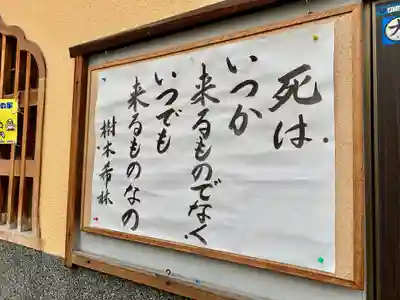 死は
いつか
来るものでなく
いつでも
来るものなの
樹木希林